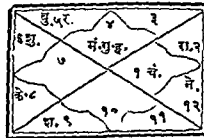 बु.५र. ४ ३
६शु. मं.गु.ह. रा.२
७ १ चं.
के.८ ने.
श.९ १० ११ १२